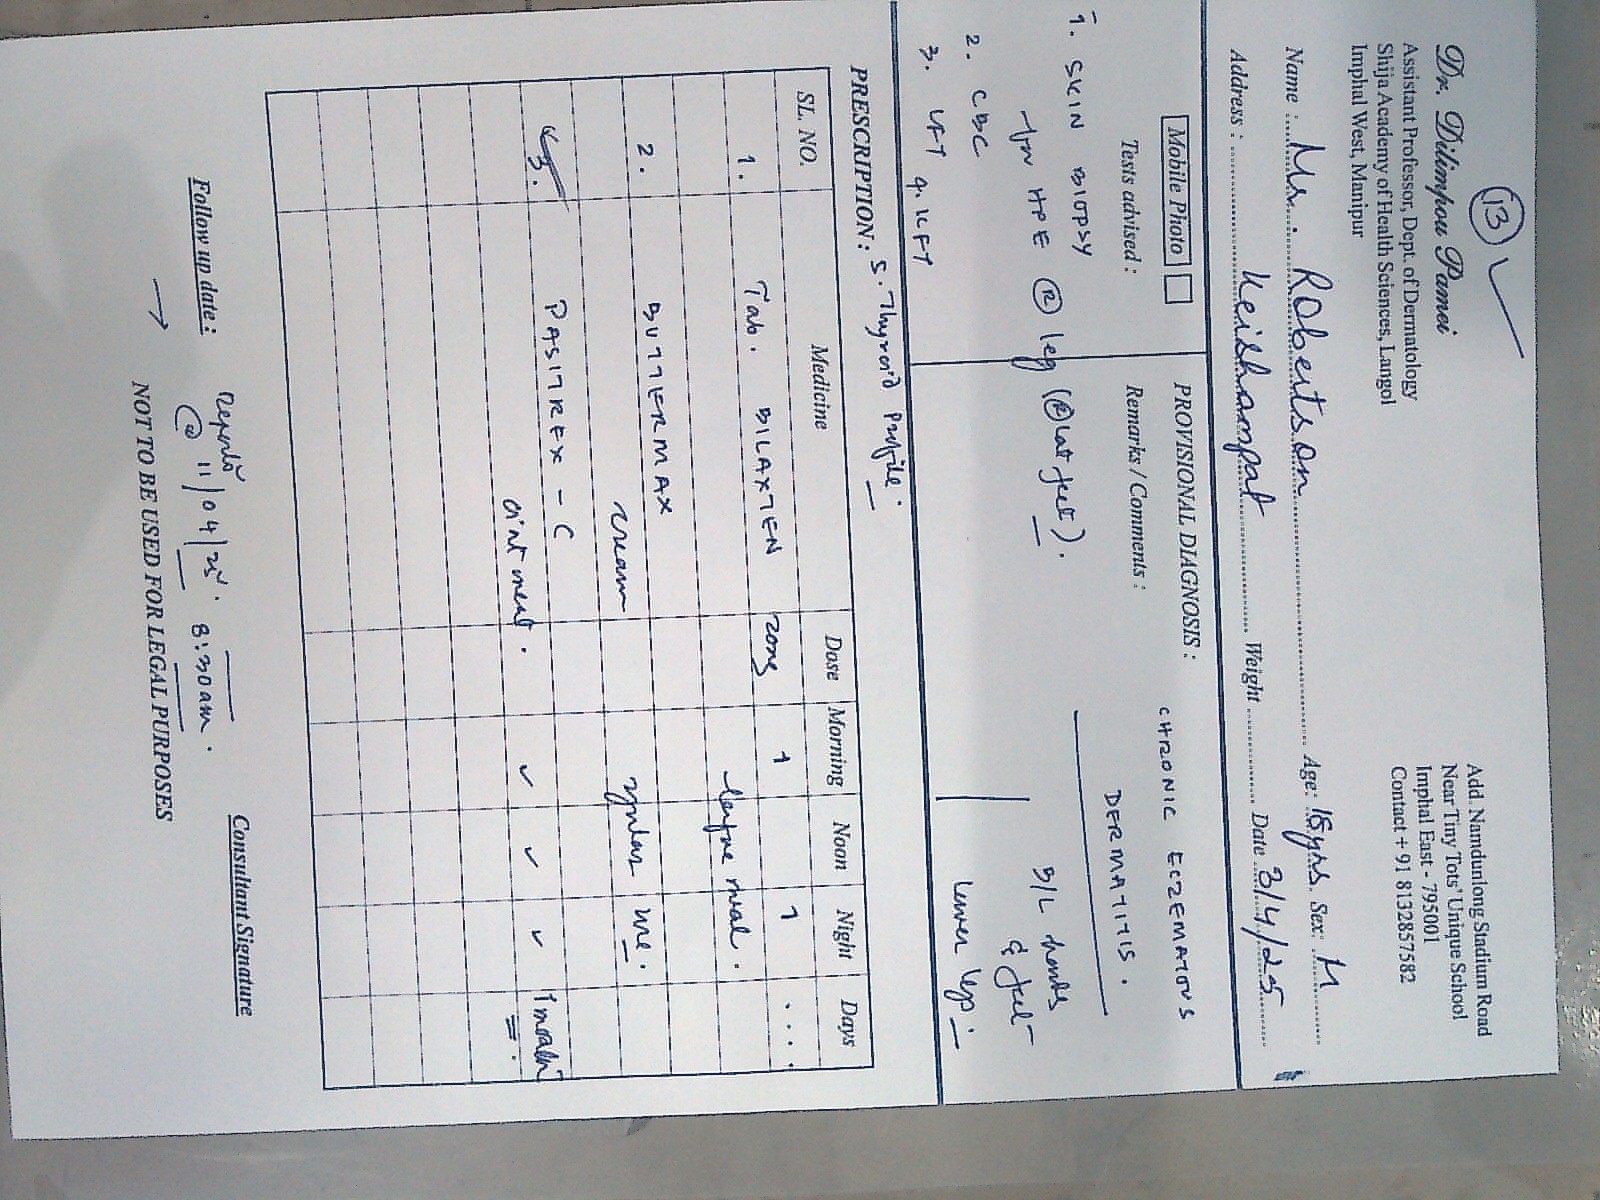 13
Dr. Dilimpou Pamei
Assistant Professor, Dept. of Dermatology
Shija Academy of Health Sciences, Langol
Imphal West, Manipur
Add. Namdunlong Stadium Road
Near Tiny Tots' Unique School
Imphal East - 795001
Contact + 91 8132857582
Name : Mr. Robertson Age: 18 yrs. Sex: M
Address : Keishampat Weight Date 3/4/25
Mobile Photo
Tests advised :
1. SKIN BIOPSY
for HPE @ (R) leg ((R) Lat feet).
2. CBC
3. LFT 4. KFT
5. Thyroid Profile.
PROVISIONAL DIAGNOSIS : CHRONIC ECZEMATOUS
DERMATITIS.
Remarks / Comments :
B/L hands
& feet
lower legs
PRESCRIPTION :
SL. NO. Medicine Dose Morning Noon Night Days
1. Tab. BILAXTEN 20mg 1 1 ....
before meal.
2. BUTTERMAX
cream regular use.
3. PASITREX - C
ointment. ✓ ✓ ✓ 1 month
Follow up date : Reports
@ 11/04/25. 8:30am.
Consultant Signature
→ NOT TO BE USED FOR LEGAL PURPOSES